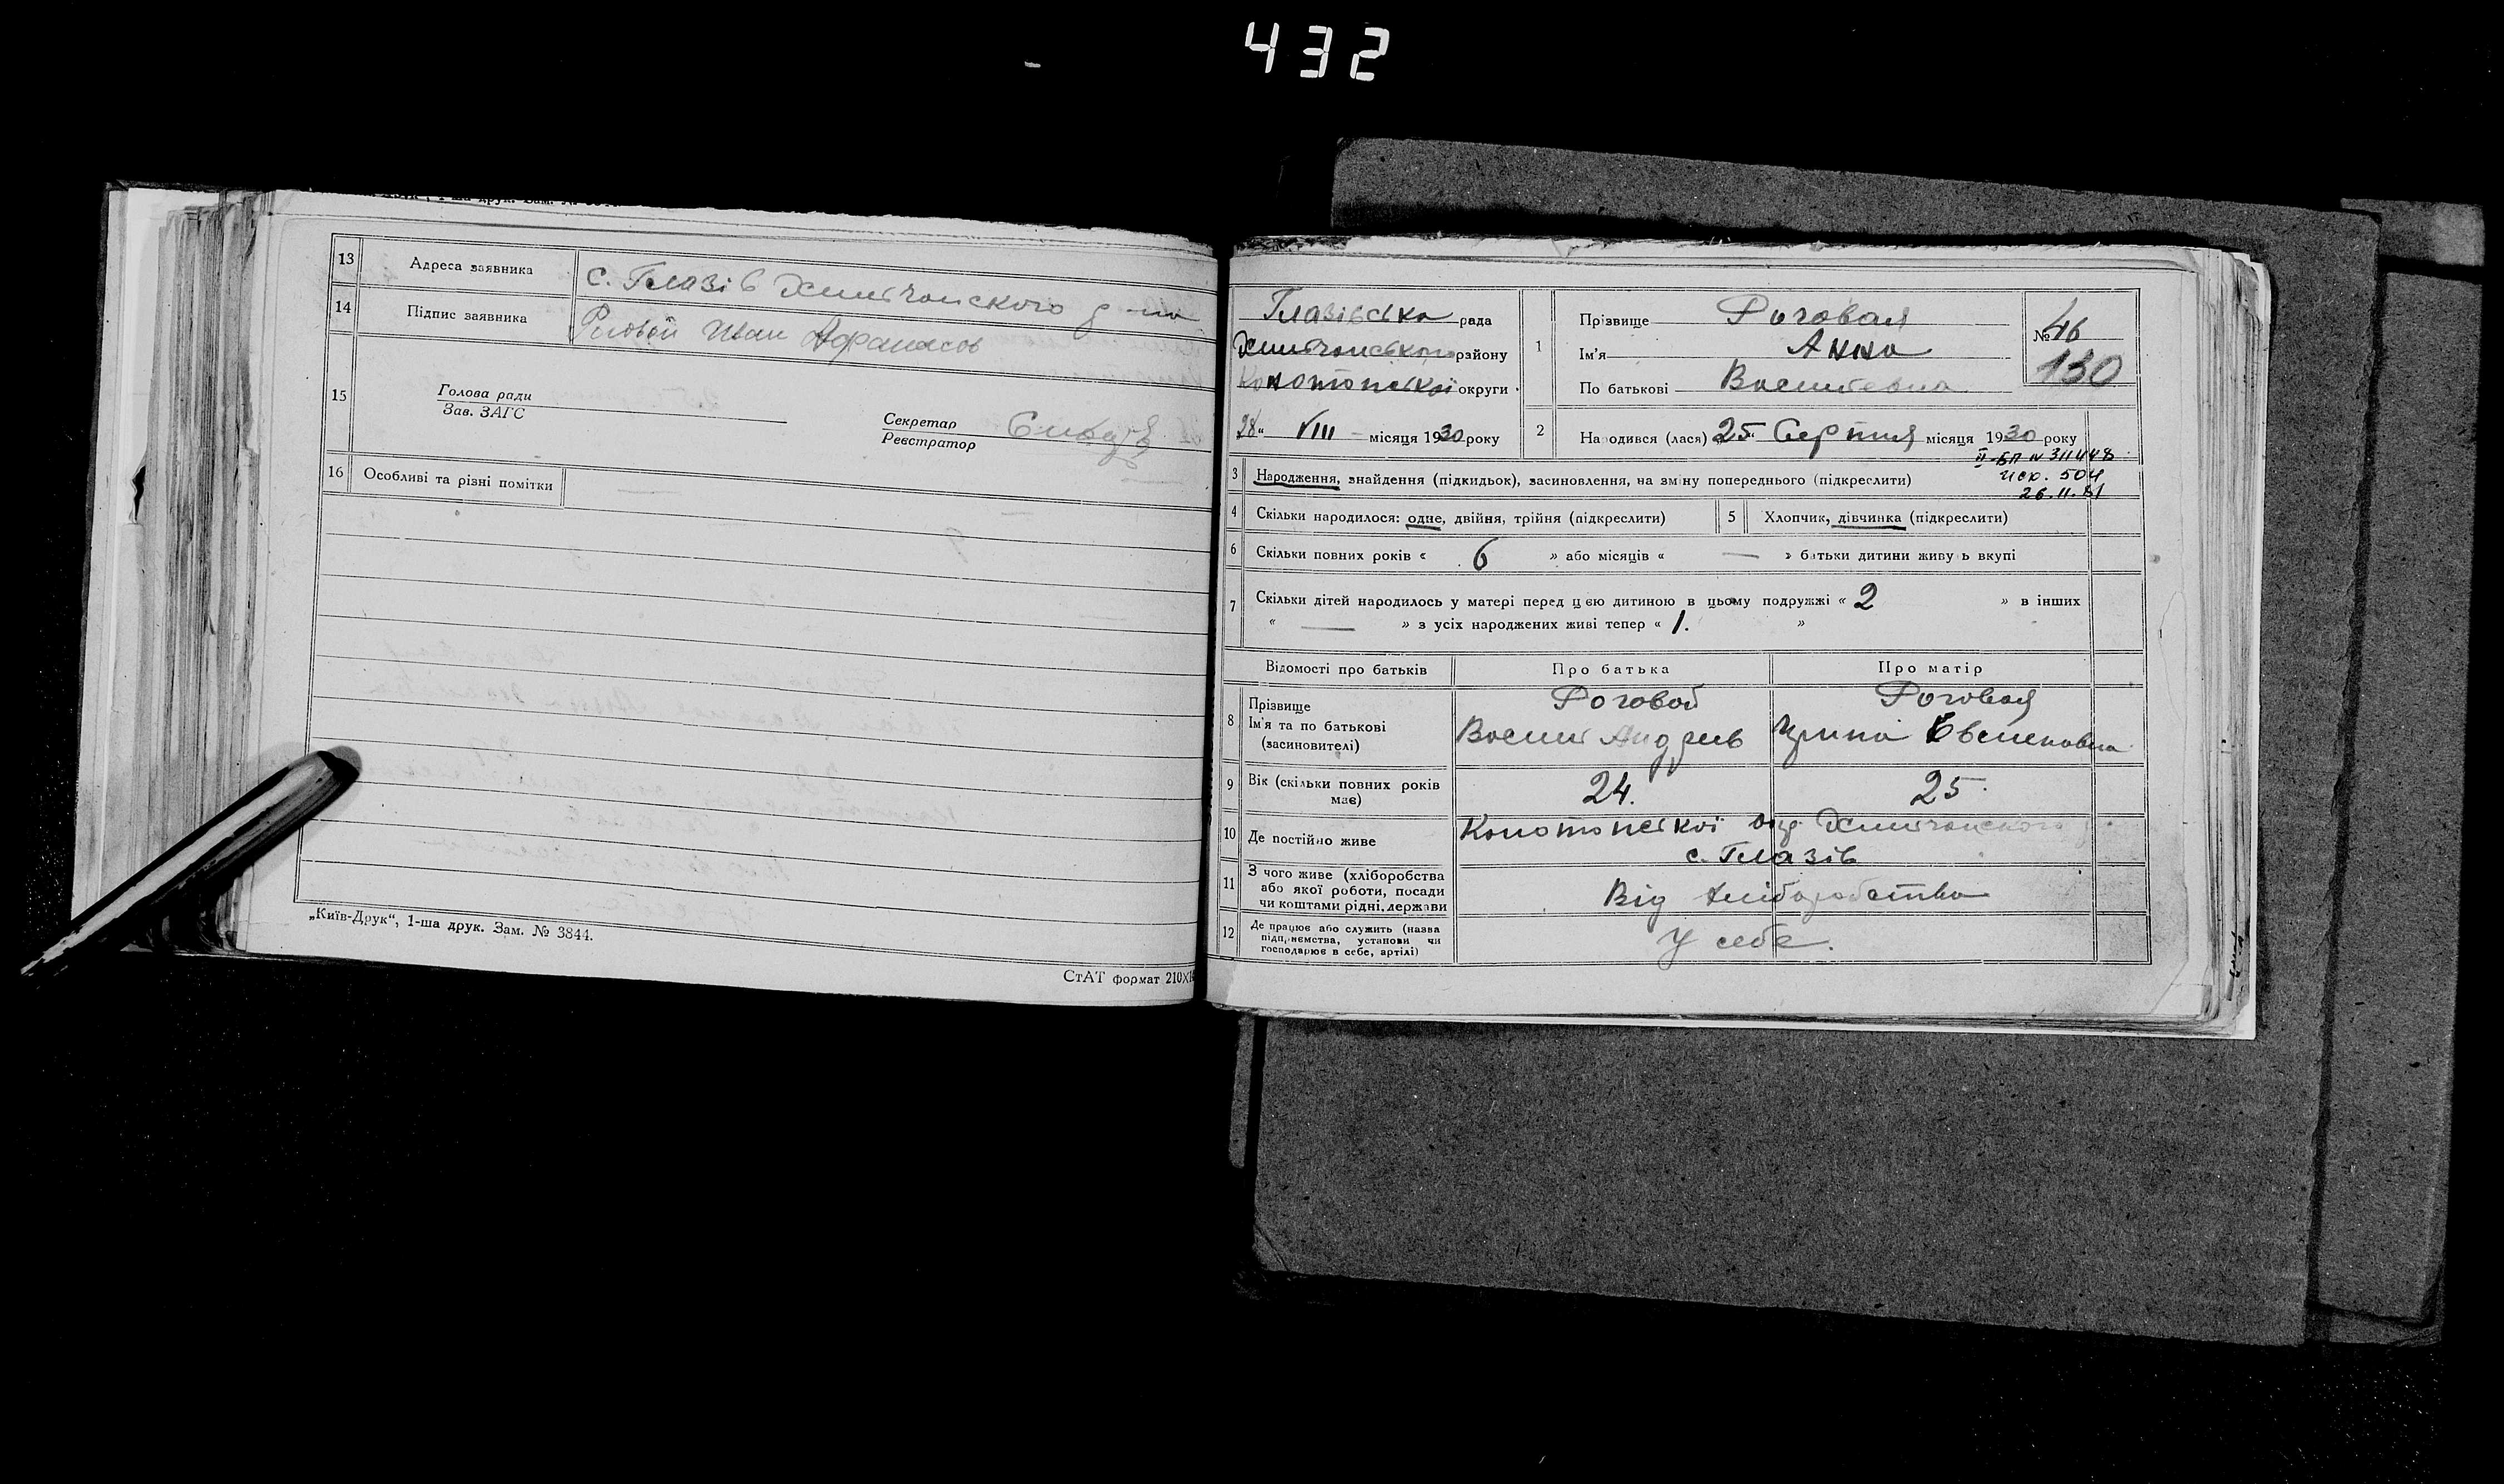 432
13 Адреса заявника с. Глазів Хильчанського р-ну
14 Підпис заявника Роговой Иван Афанасов
15 Голова ради
Зав. ЗАГС
Секретар
Реєстратор
16 Особливі та різні помітки —
„Київ-Друк“, 1-ша друк. Зам. № 3844.
СтАТ формат 210×1
Глазівська рада
Хильчанського району
Конотопської округи
28 VIII місяця 1930 року
1 Прізвище Роговая
Ім'я Анна
По батькові Василевна
№ 46
130
2 Народився (лася) 25 Серпня місяця 1930 року
II-БП № 311448
исх. 504
26.11.81
3 Народження, знайдення (підкидьок), засиновлення, на зміну попереднього (підкреслити)
4 Скільки народилося: одне, двійня, трійня (підкреслити) 5 Хлопчик, дівчинка (підкреслити)
6 Скільки повних років « 6 » або місяців « — » батьки дитини живуть вкупі
7 Скільки дітей народилось у матері перед цією дитиною в цьому подружжі « 2 » в інших
« — » з усіх народжених живі тепер « 1. »
Відомості про батьків Про батька Про матір
8 Прізвище Роговой Роговая
Ім'я та по батькові Василь Андрів Ірина Евсиковна
(засиновителі)
9 Вік (скільки повних років має) 24. 25.
10 Де постійно живе Конотопської окр. Хильчанського
с. Глазів
11 З чого живе (хліборобства
або якої роботи, посади
чи коштами рідні, держави Від хліборобства
12 Де працює або служить (назва
підприємства, установи чи
господарює в себе, артілі) У себе.